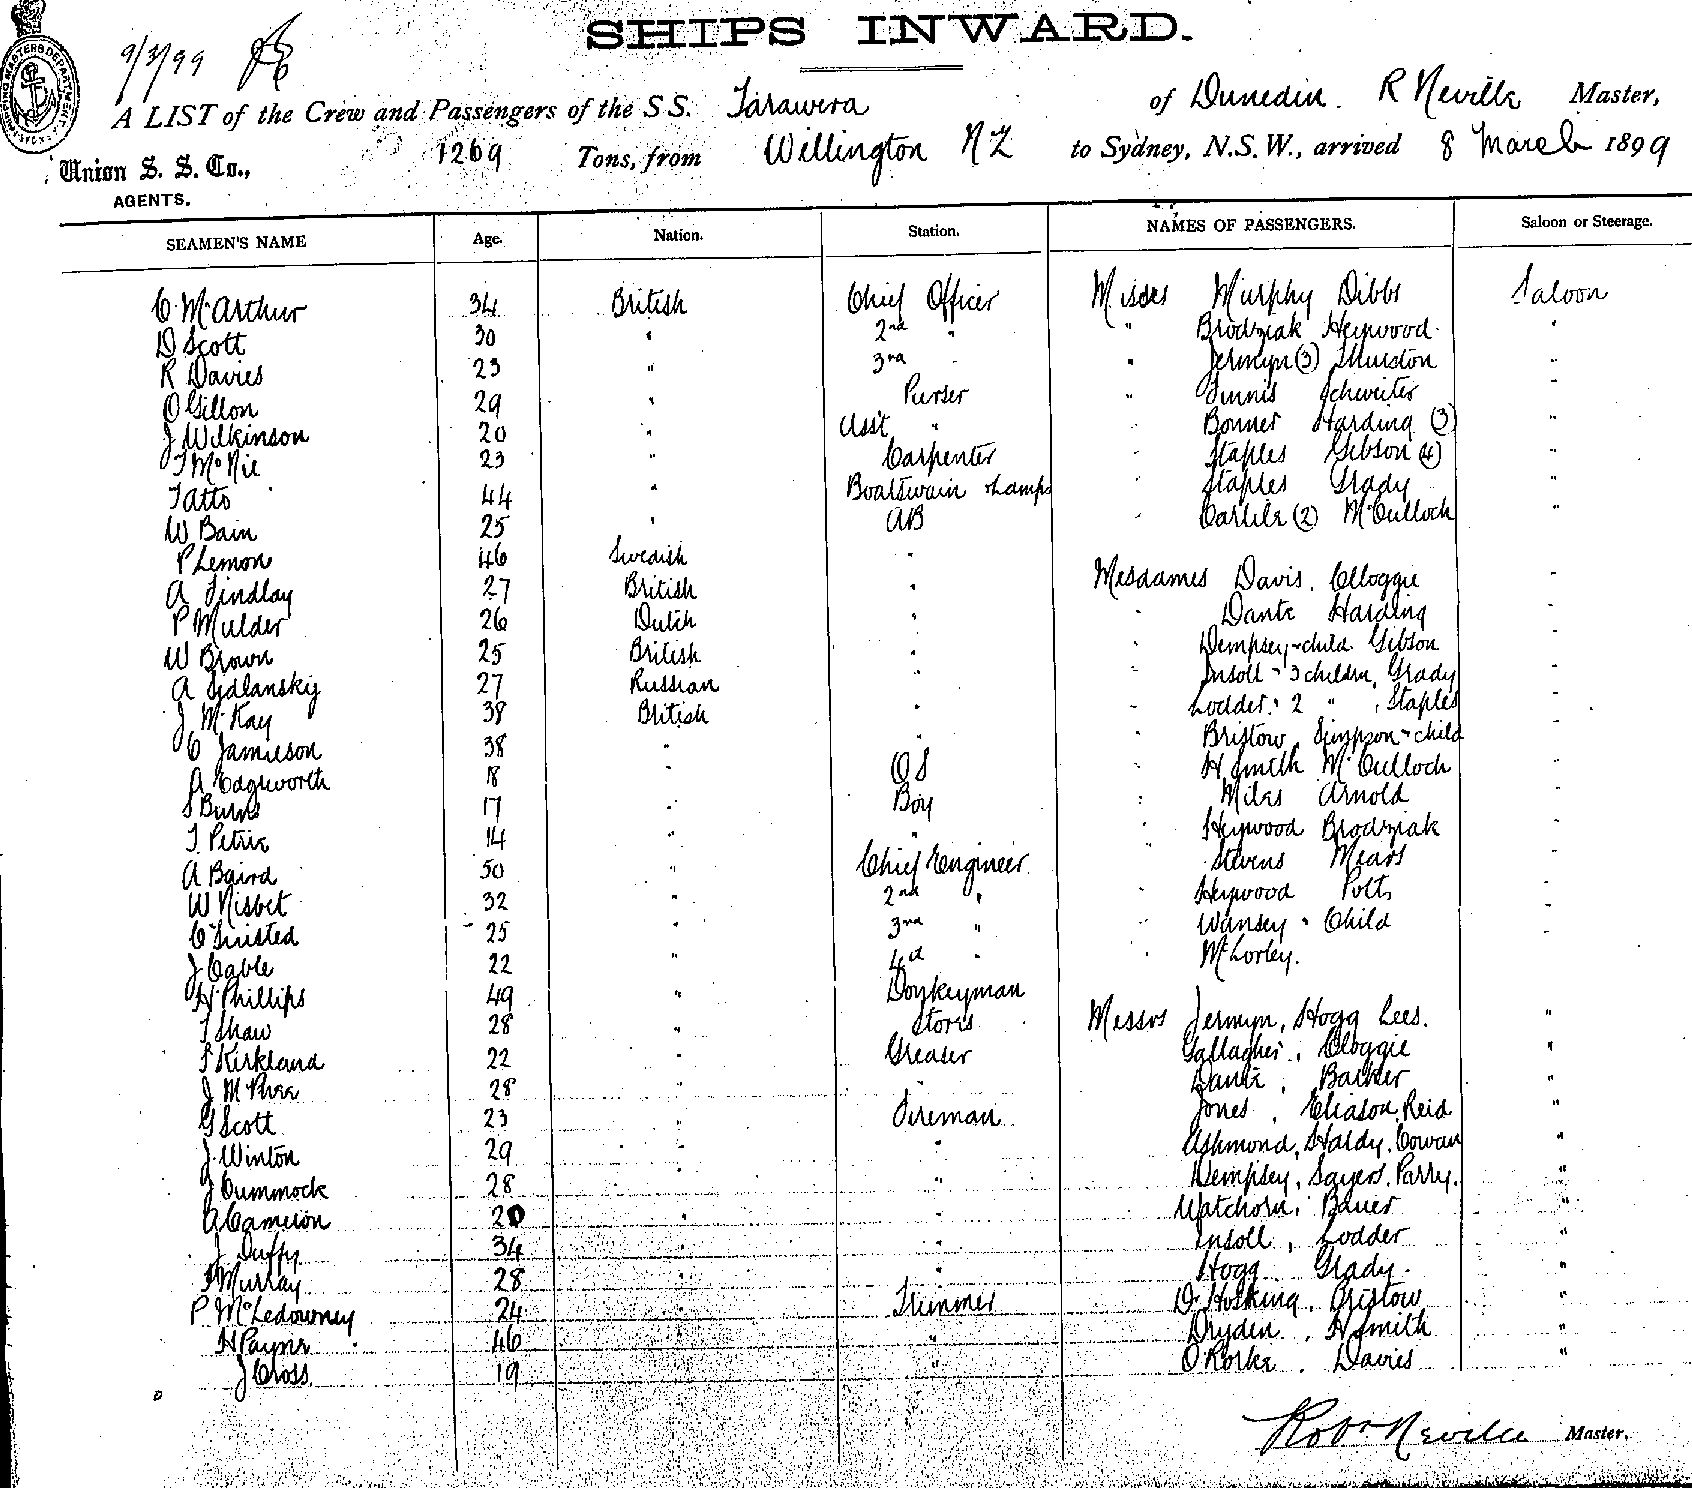 SHIPS INWARD.
9/3/99
A LIST of the Crew and Passengers of the S S. Tarawera of Dunedin. R Neville Master,
1269 Tons, from Willington NZ to Sydney, N.S.W., arrived 8 March 1899
Union S. S. Co.,
AGENTS.
SEAMEN'S NAME Age. Nation. Station. NAMES OF PASSENGERS. Saloon or Steerage.
C McArthur 34 British Chief Officer Misses Murphy Dibbs Saloon
D Scott 30 " 2nd " " Brodziak Heywood "
R Davies 23 " 3rd " " Jermyn (3) Thurston "
O Gillon 29 " Purser " Finnis Schweiter "
J Wilkinson 20 " Asst " " Bonner Harding (3) "
T McNie 23 " Carpenter " Staples Gibson (4) "
T Atto 44 " Boatswain & Lamps " Staples Grady "
W Bain 25 " AB " Carlile (2) McCulloch "
P Lemon 46 Swedish "
A Findlay 27 British " Mesdames Davis. Cloggie "
P Mulder 26 Dutch " " Dante Harding "
W Brown 25 British " " Dempsey & child Gibson "
A 27 Russian " " Insoll & 3 children, Grady "
J McKay 38 British " " Lodder & 2 " , Staples "
C Jamieson 38 " " " Bristow, Simpson & child "
A Edgworth 18 " OS " H Smith McCulloch "
S Burns 17 " Boy " Miles Arnold "
T Petrie 14 " " " Heywood Brodziak "
A Baird 50 " Chief Engineer " Stevens Mears "
W Nisbet 32 " 2nd " " Heywood Potts "
C 25 " 3rd " " Wansey & Child "
J Cable 22 " 4th " " McLorley.
H Phillips 49 " Donkeyman
T Shaw 28 " Stores Messrs Jermyn, Hogg Lees. "
T Kirkland 22 " Greaser Gallagher, Cloggie "
J McPhee 28 " " Dante, Barker "
G Scott 23 " Fireman Jones, Eliason, Reid "
J Winton 29 " " Ashmond, Hardy, Cowan "
J Cummock 28 " " Dempsey, Sayers, Parry. "
A Cameron 20 " " Watchorn, Bauer "
J Duffy 34 " " Insoll, Lodder "
T Murray 28 " " Hogg Grady. "
P McLedowney 24 " Trimmer D. Hosking, Bristow "
H Payne 46 " " Dryden, H Smith "
J Cross 19 " " O'Rorke, Davies "
Robt Neville Master.